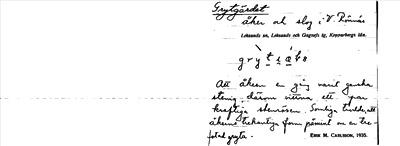 Grytgärdet
åker och slog i V. Rönnäs
Leksands sn, Leksands och Gagnefs tg, Kopparbergs län.
grytsabo
Att åkern en gång varit ganska
stenig, därom vittna ett par
kraftiga stenrösen. Somliga trodde, att
åkerns trekantiga form påmint om en tre-
fotad gryta.
ERIK M. CARLSSON, 1935.